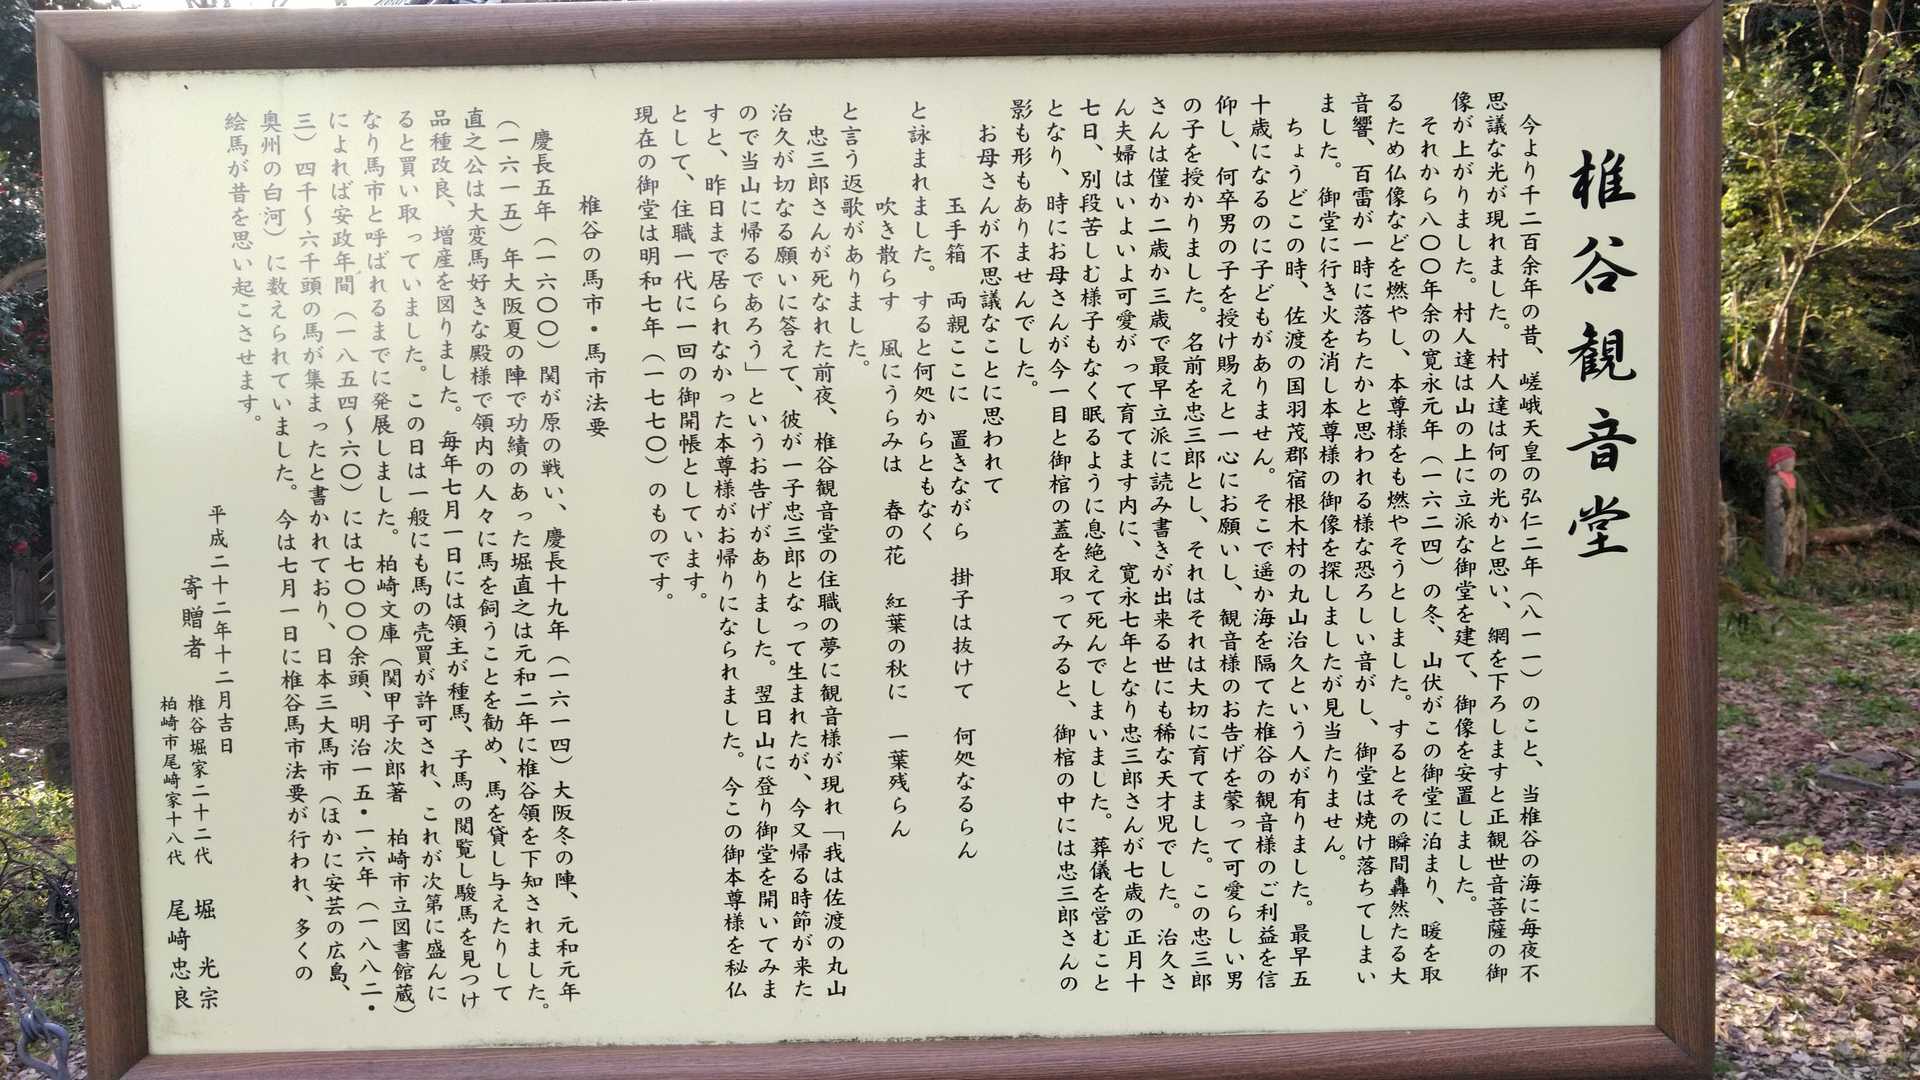 椎谷観音堂
今より千二百余年の昔、嵯峨天皇の弘仁二年（八一一）のこと、当椎谷の海に毎夜不
思議な光が現れました。村人達は何の光かと思い、網を下ろしますと正観世音菩薩の御
像が上がりました。村人達は山の上に立派な御堂を建て、御像を安置しました。
それから八〇〇年余の寛永元年（一六二四）の冬、山伏がこの御堂に泊まり、暖を取
るため仏像などを燃やし、本尊様をも燃やそうとしました。するとその瞬間轟然たる大
音響、百雷が一時に落ちたかと思われる様な恐ろしい音がし、御堂は焼け落ちてしまい
ました。御堂に行き火を消し本尊様の御像を探しましたが見当たりません。
ちょうどこの時、佐渡の国羽茂郡宿根木村の丸山治久という人が有りました。最早五
十歳になるのに子どもがありません。そこで遥か海を隔てた椎谷の観音様のご利益を信
仰し、何卒男の子を授け賜えと一心にお願いし、観音様のお告げを蒙って可愛らしい男
の子を授かりました。名前を忠三郎とし、それはそれは大切に育てました。この忠三郎
さんは僅か二歳か三歳で最早立派に読み書きが出来る世にも稀な天才児でした。治久さ
ん夫婦はいよいよ可愛がって育てます内に、寛永七年となり忠三郎さんが七歳の正月十
七日、別段苦しむ様子もなく眠るように息絶えて死んでしまいました。葬儀を営むこと
となり、時にお母さんが今一目と御棺の蓋を取ってみると、御棺の中には忠三郎さんの
影も形もありませんでした。
お母さんが不思議なことに思われて
玉手箱　両親ここに　置きながら　掛子は抜けて　何処なるらん
と詠まれました。すると何処からともなく
吹き散らす　風にうらみは　春の花　紅葉の秋に　一葉残らん
と言う返歌がありました。
忠三郎さんが死なれた前夜、椎谷観音堂の住職の夢に観音様が現れ「我は佐渡の丸山
治久が切なる願いに答えて、彼が一子忠三郎となって生まれたが、今又帰る時節が来た
ので当山に帰るであろう」というお告げがありました。翌日山に登り御堂を開いてみま
すと、昨日まで居られなかった本尊様がお帰りになられました。今この御本尊様を秘仏
として、住職一代に一回の御開帳としています。
現在の御堂は明和七年（一七七〇）のものです。
椎谷の馬市・馬市法要
慶長五年（一六〇〇）関が原の戦い、慶長十九年（一六一四）大阪冬の陣、元和元年
（一六一五）年大阪夏の陣で功績のあった堀直之は元和二年に椎谷領を下知されました。
直之公は大変馬好きな殿様で領内の人々に馬を飼うことを勧め、馬を貸し与えたりして
品種改良、増産を図りました。毎年七月一日には領主が種馬、子馬の閲覧し駿馬を見つけ
ると買い取っていました。この日は一般にも馬の売買が許可され、これが次第に盛んに
なり馬市と呼ばれるまでに発展しました。柏崎文庫（関甲子次郎著　柏崎市立図書館蔵）
によれば安政年間（一八五四～六〇）には七〇〇〇余頭、明治一五・一六年（一八八二・
三）四千～六千頭の馬が集まったと書かれており、日本三大馬市（ほかに安芸の広島、
奥州の白河）に数えられていました。今は七月一日に椎谷馬市法要が行われ、多くの
絵馬が昔を思い起こさせます。
平成二十二年十二月吉日
寄贈者　椎谷堀家二十二代　堀　光宗
柏崎市尾﨑家十八代　尾﨑忠良